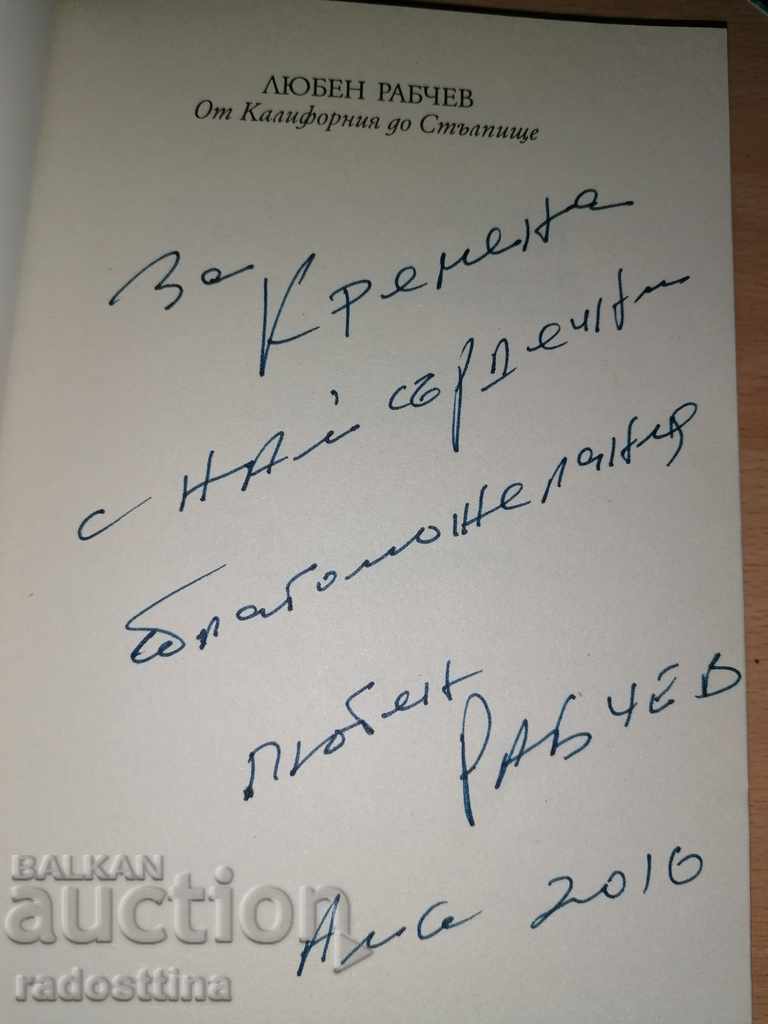 ЛЮБЕН РАБЧЕВ
От Калифорния до Стълпище
За Кремена
с най сърдечни
благопожелания
Любен Рабчев
2010
BALKAN
auction
radosttina